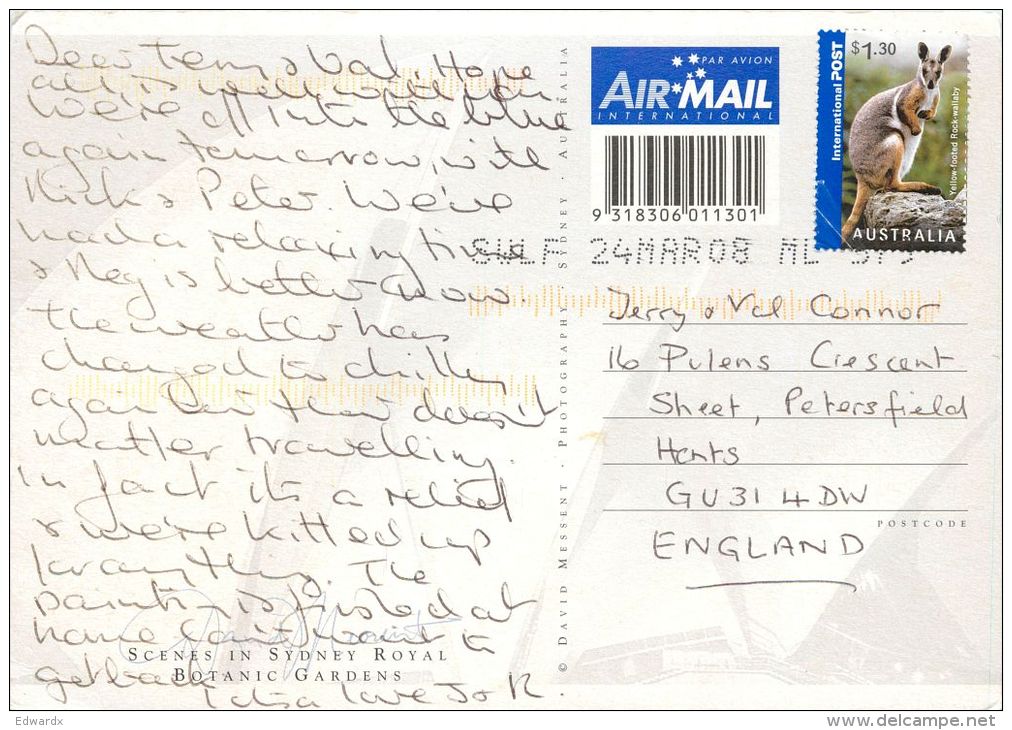 Dear Terry & Val, Hope
all is well with you
We're off into the blue
again tomorrow, with
Nick & Peter. We've
had a relaxing time
& Meg is better now.
The weather has
changed to chilly
again but that doesn't
matter travelling.
In fact it's a relief
& we're kitted up
for anything. The
painting is finished at
home & can't wait to
get back
love J & R.
SCENES IN SYDNEY ROYAL
BOTANIC GARDENS
© DAVID MESSENT · PHOTOGRAPHY · SYDNEY · AUSTRALIA
PAR AVION
AIR MAIL
INTERNATIONAL
9 318306 011301
International POST
$1.30
Yellow-footed Rock-wallaby
AUSTRALIA
24MAR08 ML
Terry & Val Connor
16 Pulens Crescent
Sheet, Petersfield
Hants
GU31 4DW
POSTCODE
ENGLAND
Edwardx
delcampe.net